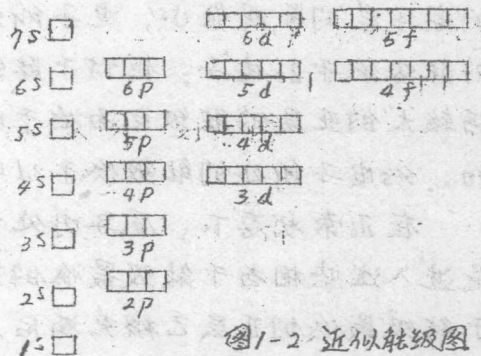 7s 6d 5f
6s 6p 5d 4f
5s 5p 4d
4s 4p 3d
3s 3p
2s 2p
1s
图1-2 近似能级图